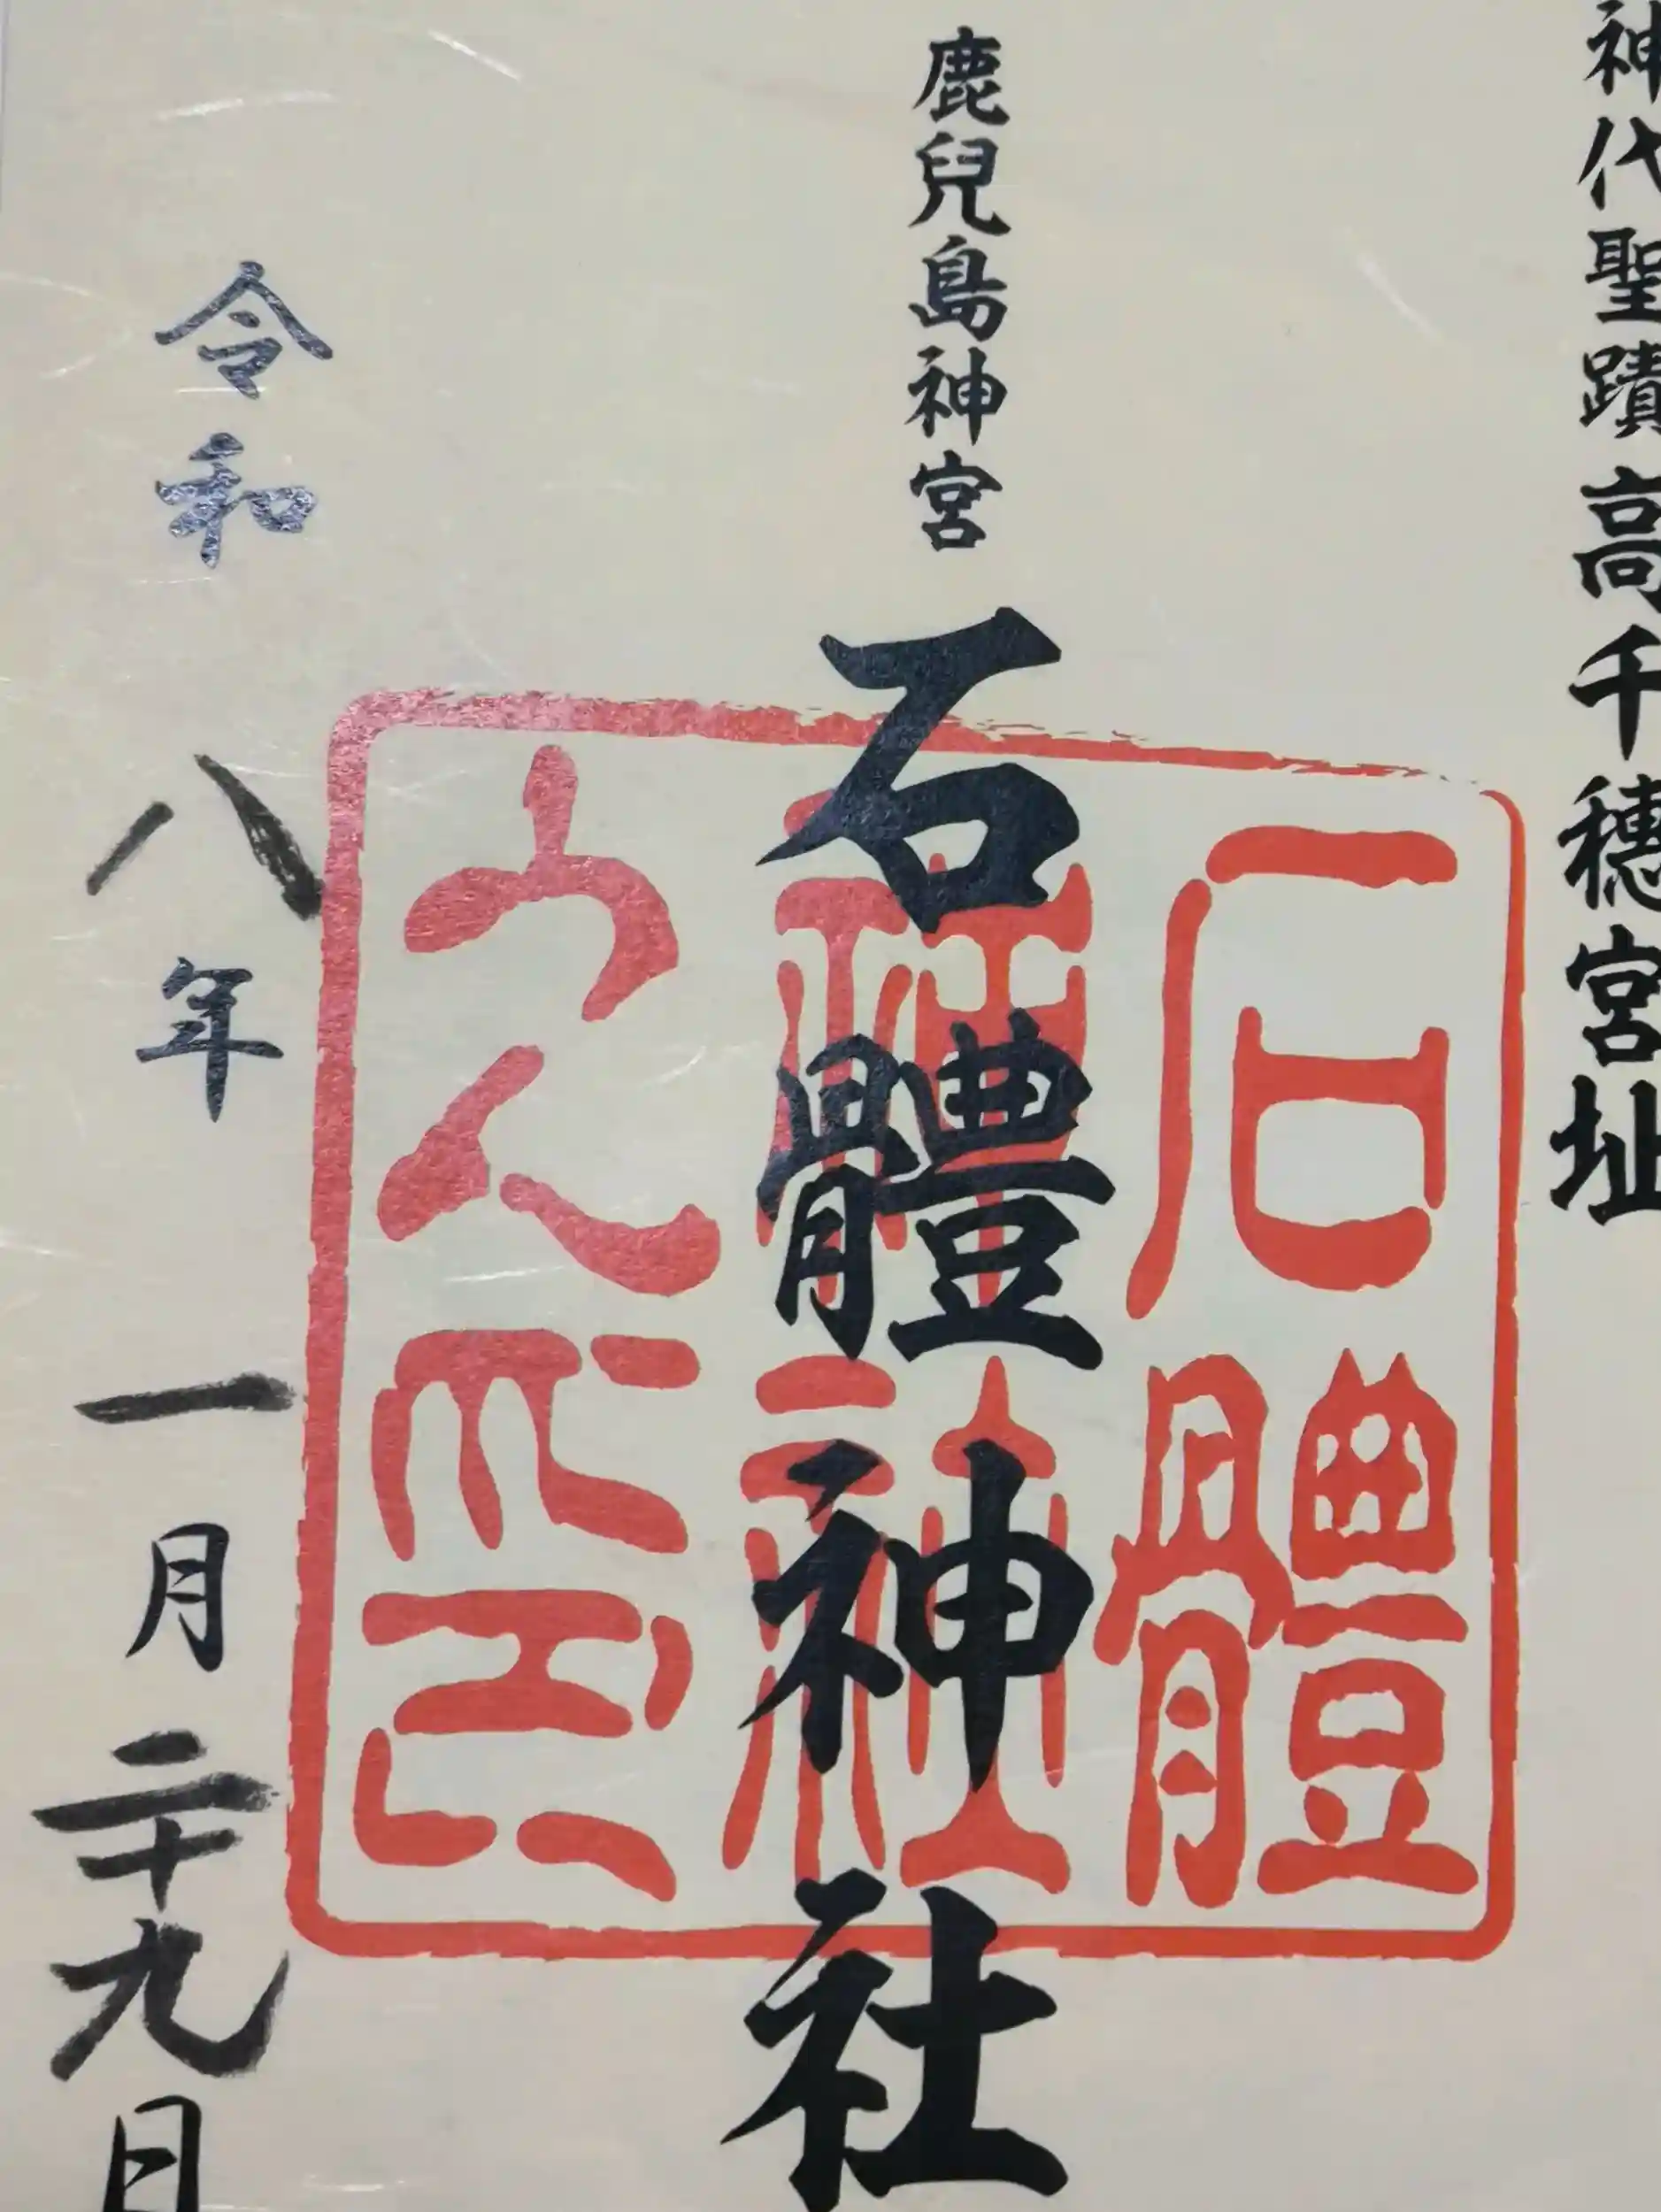 神代聖蹟高千穗宮址
鹿兒島神宮
石體神社
石體
神社
之印
令和八年一月二十九日